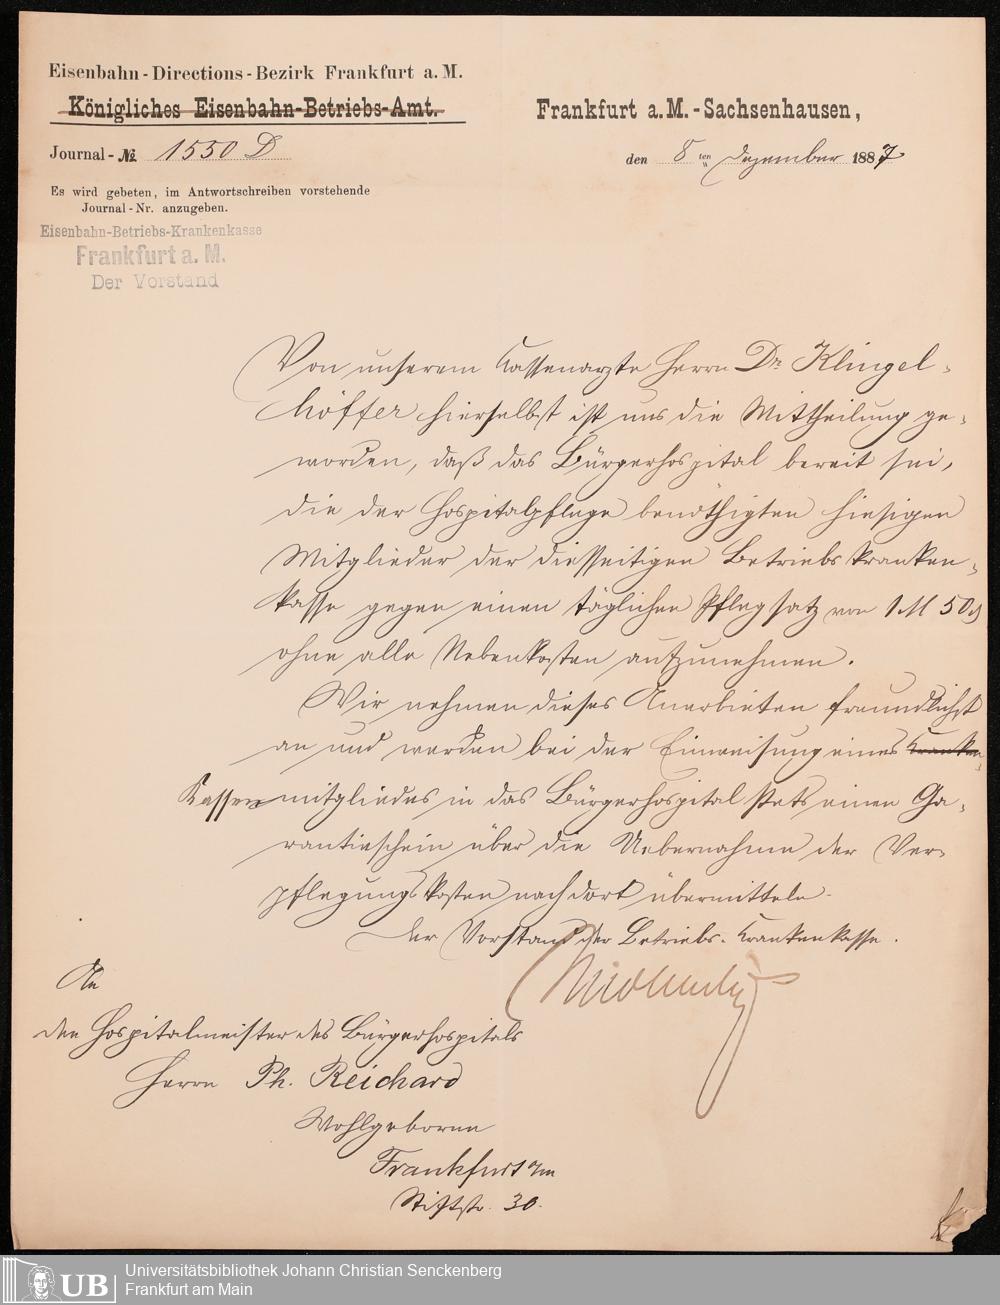 Eisenbahn-Directions-Bezirk Frankfurt a. M.
Königliches Eisenbahn-Betriebs-Amt.
Frankfurt a. M.-Sachsenhausen,
Journal-№ 1550 D
den 8 ten Dezember 1887
Es wird gebeten, im Antwortschreiben vorstehende
Journal-Nr. anzugeben.
Eisenbahn-Betriebs-Krankenkasse
Frankfurt a. M.
Der Vorstand
Von unserem Kassenarzte Herrn Dr. Klingel-
höffer hierselbst ist uns die Mittheilung ge-
worden, daß das Bürgerhospital bereit sei,
die der Hospitalpflege benöthigten hiesigen
Mitglieder der diesseitigen Betriebskranken-
kasse gegen einen täglichen Pflegsatz von 1 M 50 ₰
ohne alle Nebenkosten aufzunehmen.
Wir nehmen dieses Anerbieten freundlichst
an und werden bei der Einweisung eines Kranken-
Kassenmitgliedes in das Bürgerhospital stets einen Ga-
rantieschein über die Uebernahme der Ver-
pflegungskosten nach dort übermitteln.
Der Vorstand der Betriebs-Krankenkasse.
An
den Hospitalmeister des Bürgerhospitals
Herrn Ph. Reichard
Wohlgeboren
Frankfurt a/m
Stiftstr. 30.
UB
Universitätsbibliothek Johann Christian Senckenberg
Frankfurt am Main